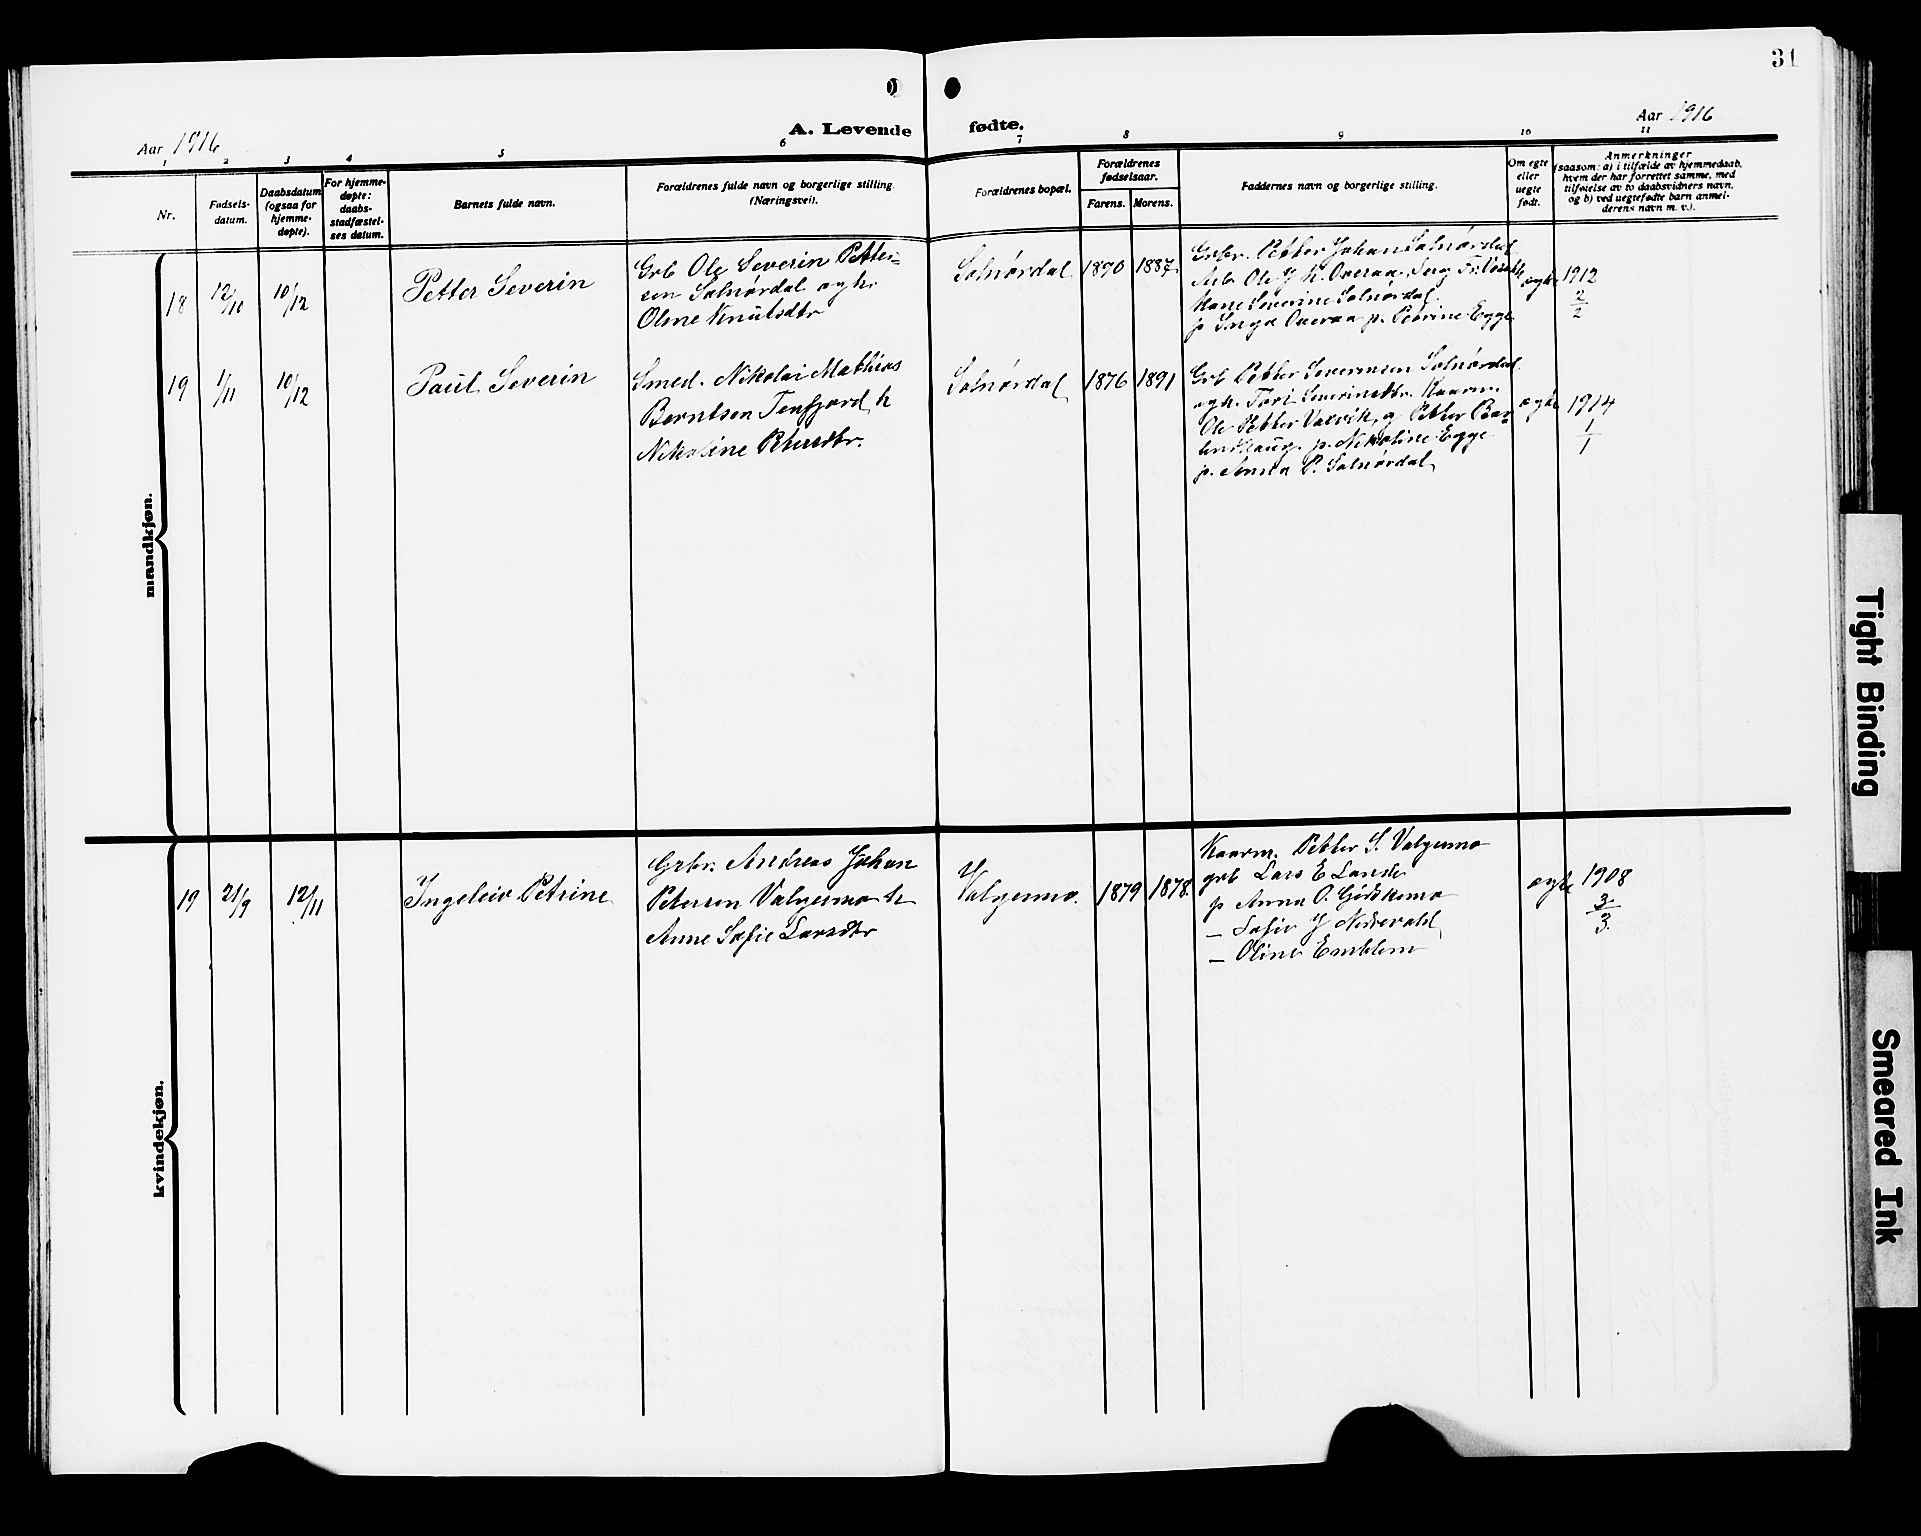 31
Aar 1916
A. Levende fødte.
Aar 1916
1 2 3 4 5 6 7 8 9 10 11
Nr.
Fødsels-
datum.
Daabsdatum
(ogsaa for
hjemme-
døpte).
For hjemme-
døpte:
daabs-
stadfæstel-
ses datum.
Barnets fulde navn.
Forældrenes fulde navn og borgerlige stilling
(Næringsvei).
Forældrenes bopæl.
Forældrenes
fødselsaar.
Farens. Morens.
Faddernes navn og borgerlige stilling.
Om egte
eller
uegte
født.
Anmerkninger
(saasom: a) i tilfælde av hjemmedaab,
hvem der har forrettet samme, med
tilføielse av to daabsvidners navn,
og b) ved uegtefødte barn anmel-
derens navn m. v.).
mandkjøn.
18
12/10
10/12
Petter Severin
Grb Ole Severin Petter=
sen Solnørdal og h.
Oline Knutsdtr
Solnørdal
1890
1887
Grbr. Petter Johan Solnørdal
Arb Ole J K. Overaa
Hane Severine Solnørdal
p Inga Overaa p. Petrine Egge
egte
1912
2/2
19
1/11
10/12
Paul Severin
Smed. Nikolai Mathias
Berntsen Tenfjord h
Nikoline Petersdtr.
Solnørdal
1876
1891
Grb Petter Severinsen Solnørdal
og h. Severinsdtr. Kaarm.
Ole Petter Valvik, g Petter
p. Nikoline Egge
p. Anna P. Solnørdal
egte
1914
1/1
kvindekjøn.
19
21/9
12/11
Ingeleiv Petrine
Grbr. Andreas Johan
Petersen Valgermo h
Anne Sofie Larsdtr
Valgermo.
1879
1878.
Kaarm. Petter S. Valgermo
grb Lars E Lande
p Anna O. Gjøskemo
— Sofie J Nedrevald
— Oline Emblem
egte
1908
3/3.
Tight Binding
Smeared Ink